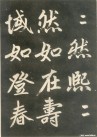 〻然熙〻
然如在壽
域如登春